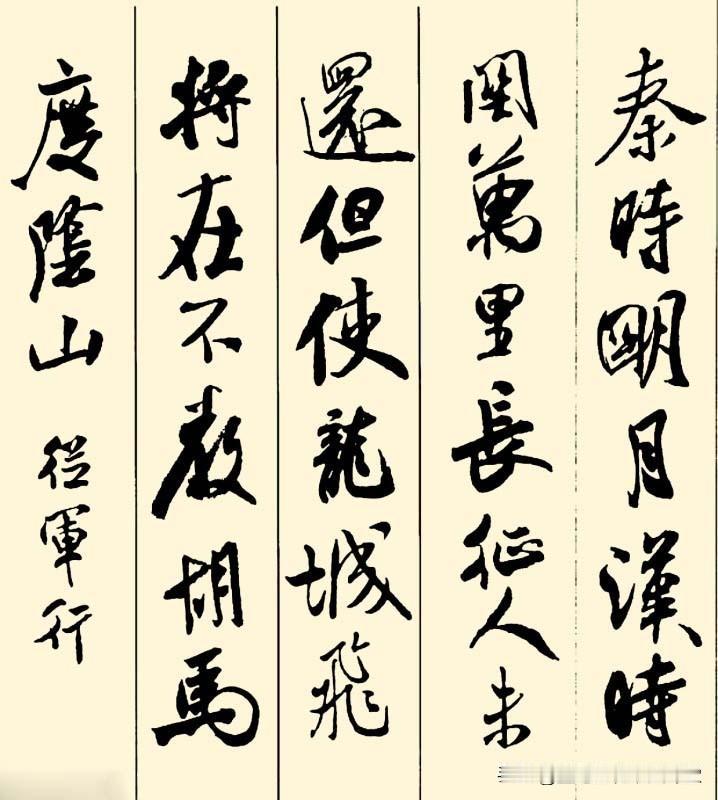 秦時明月漢時
関萬里長征人未
還但使龍城飛
將在不教胡馬
度陰山 從軍行